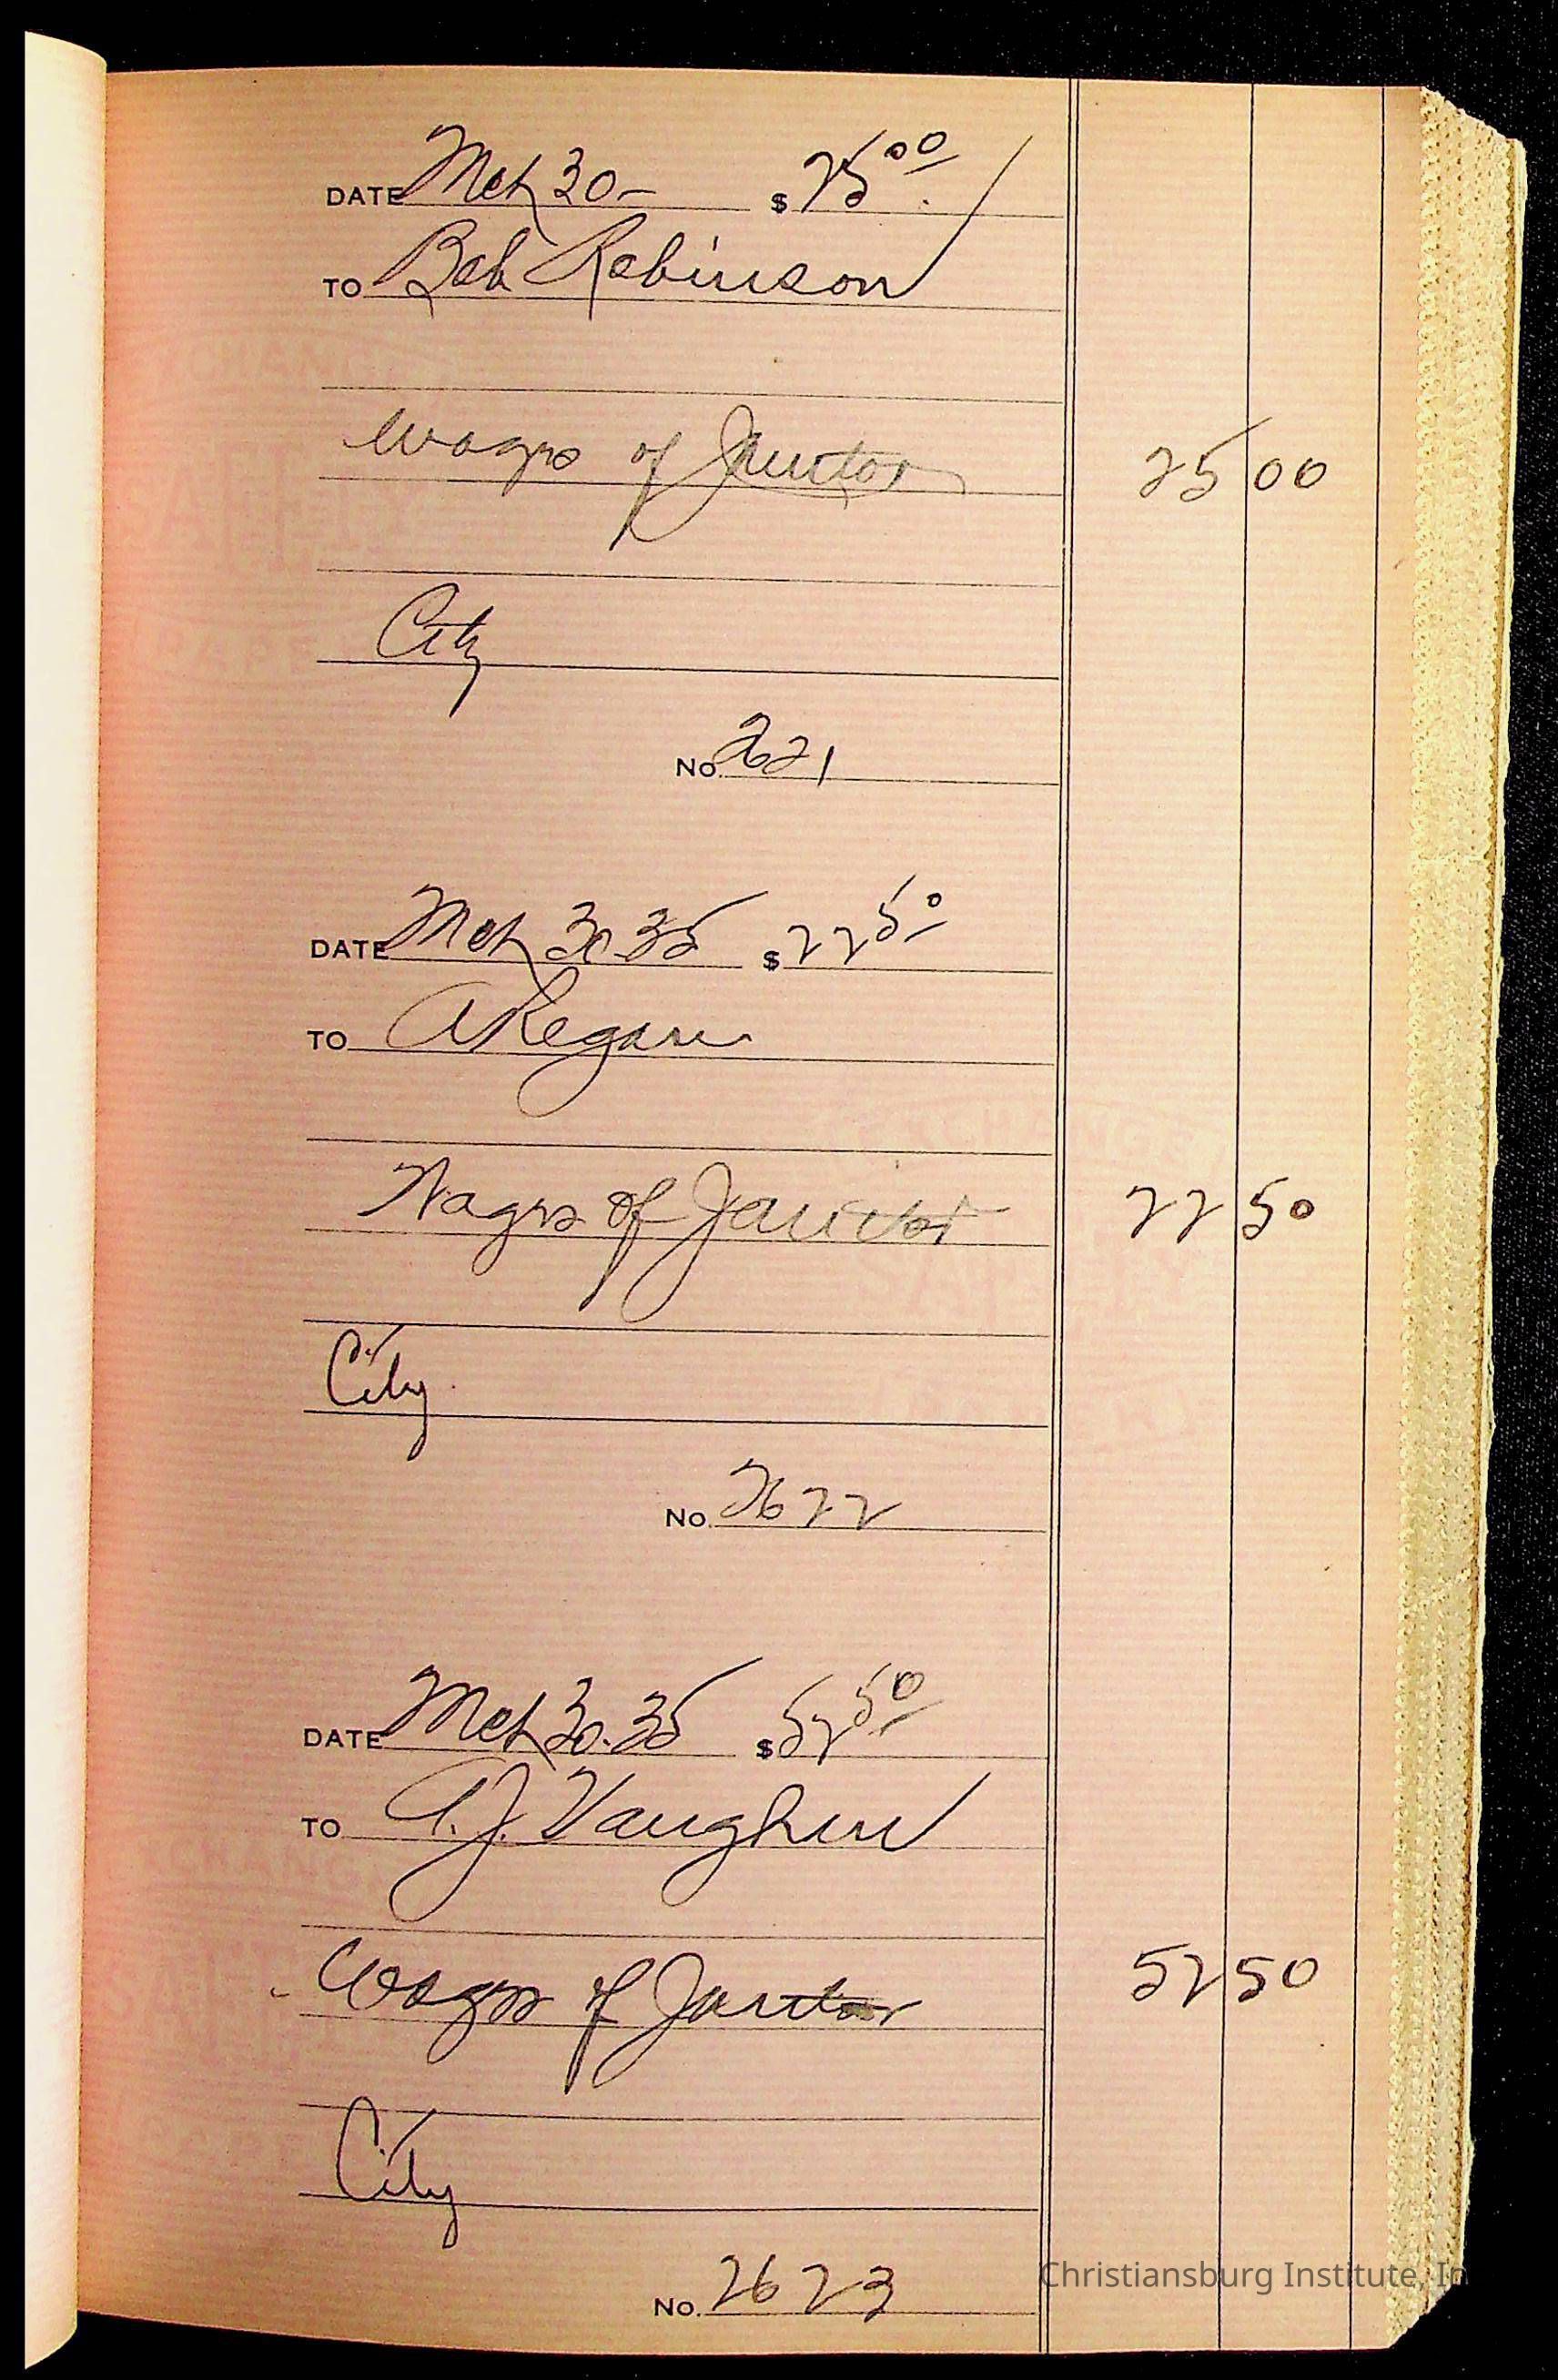 DATE Mch 30- $ 25 00
TO Bob Robinson
Wages of Janitor 25 00
City
No. 2621
DATE Mch 30-35 $ 22 50
TO A Regan
EXCHANGE
Wages of Janitor 22 50
SAFETY
City
No. 2622
DATE Mch 30-35 $ 52 50
TO A.J. Vaughn
Wages of Janitor 52 50
City
No. 2623
Christiansburg Institute, In